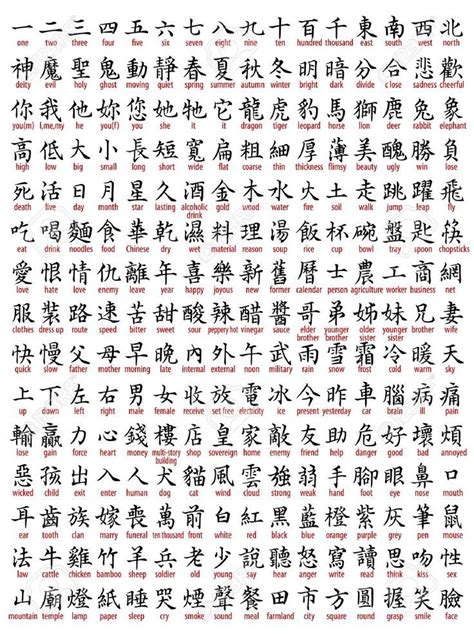 一 二 三 四 五 六 七 八 九 十 百 千 東 南 西 北
one two three four five six seven eight nine ten hundred thousand east south west north
神 魔 聖 鬼 動 靜 春 夏 秋 冬 明 暗 分 合 悲 歡
deity evil holy ghost moving quiet spring summer autumn winter bright dark divide close sadness cheerful
你 我 他 她 妳 您 她 牠 它 龍 虎 豹 馬 獅 鹿 兔 象
you(m) I,me,my he you(f) you she it it dragon tiger leopard horse lion deer rabbit elephant
高 低 大 小 長 短 寬 扁 粗 細 厚 薄 美 醜 勝 負
high low big small long short wide flat coarse thin thickness flimsy beauty ugly win lose
死 活 日 月 星 久 酒 金 木 水 火 土 走 跳 躍 飛
death live day month star lasting alcoholic drink gold wood water fire soil walk jump leap fly
吃 喝 麵 食 華 乾 濕 料 理 湯 飯 杯 碗 盤 匙 筷
eat drink noodles food Chinese dry wet material reason soup rice cup bowl tray spoon chopsticks
愛 恨 情 仇 離 年 喜 樂 新 舊 曆 士 農 工 商 網
love hate love enemy leave year happy joyous new former calendar person agriculture worker business net
服 裝 路 速 苦 甜 酸 辣 醋 醬 哥 弟 姊 妹 兄 妻
clothes dress up route speed bitter sweet sour peppery hot vinegar sauce elder brother younger brother older sister younger sister brother wife
快 慢 父 母 早 晚 內 外 午 武 雨 雪 霜 冷 暖 天
quick slow father mother morning late internal external noon military rain snow frost cold warm sky
上 下 左 右 男 女 收 放 電 冰 今 昨 車 腦 病 痛
up down left right male female receive set free electricity ice present yesterday car brain ill pain
輸 贏 力 心 錢 樓 店 皇 家 敵 友 助 危 好 壞 煩
lose gain force heart money multi-story building shop sovereign home enemy friend help danger good bad annoyed
惡 孩 出 入 人 犬 貓 風 雲 強 弱 手 腳 眼 鼻 口
wicked child exit enter human dog cat wind cloud strong weak hand foot eye nose mouth
耳 齒 族 嫁 喪 萬 前 白 紅 黑 藍 橙 紫 灰 筆 鼠
ear tooth clan marry funeral ten thousand front white red black blue orange purple grey pen mouse
法 牛 雞 竹 羊 兵 老 少 說 聽 怒 寫 讀 思 吻 性
law cattle chicken bamboo sheep soldier old young say listen anger write read think kiss sex
山 廟 燈 紙 睡 哭 煙 聲 餐 田 市 方 圓 握 笑 臉
mountain temple lamp paper sleep cry smoke sound meal farmland city square round grasp smile face